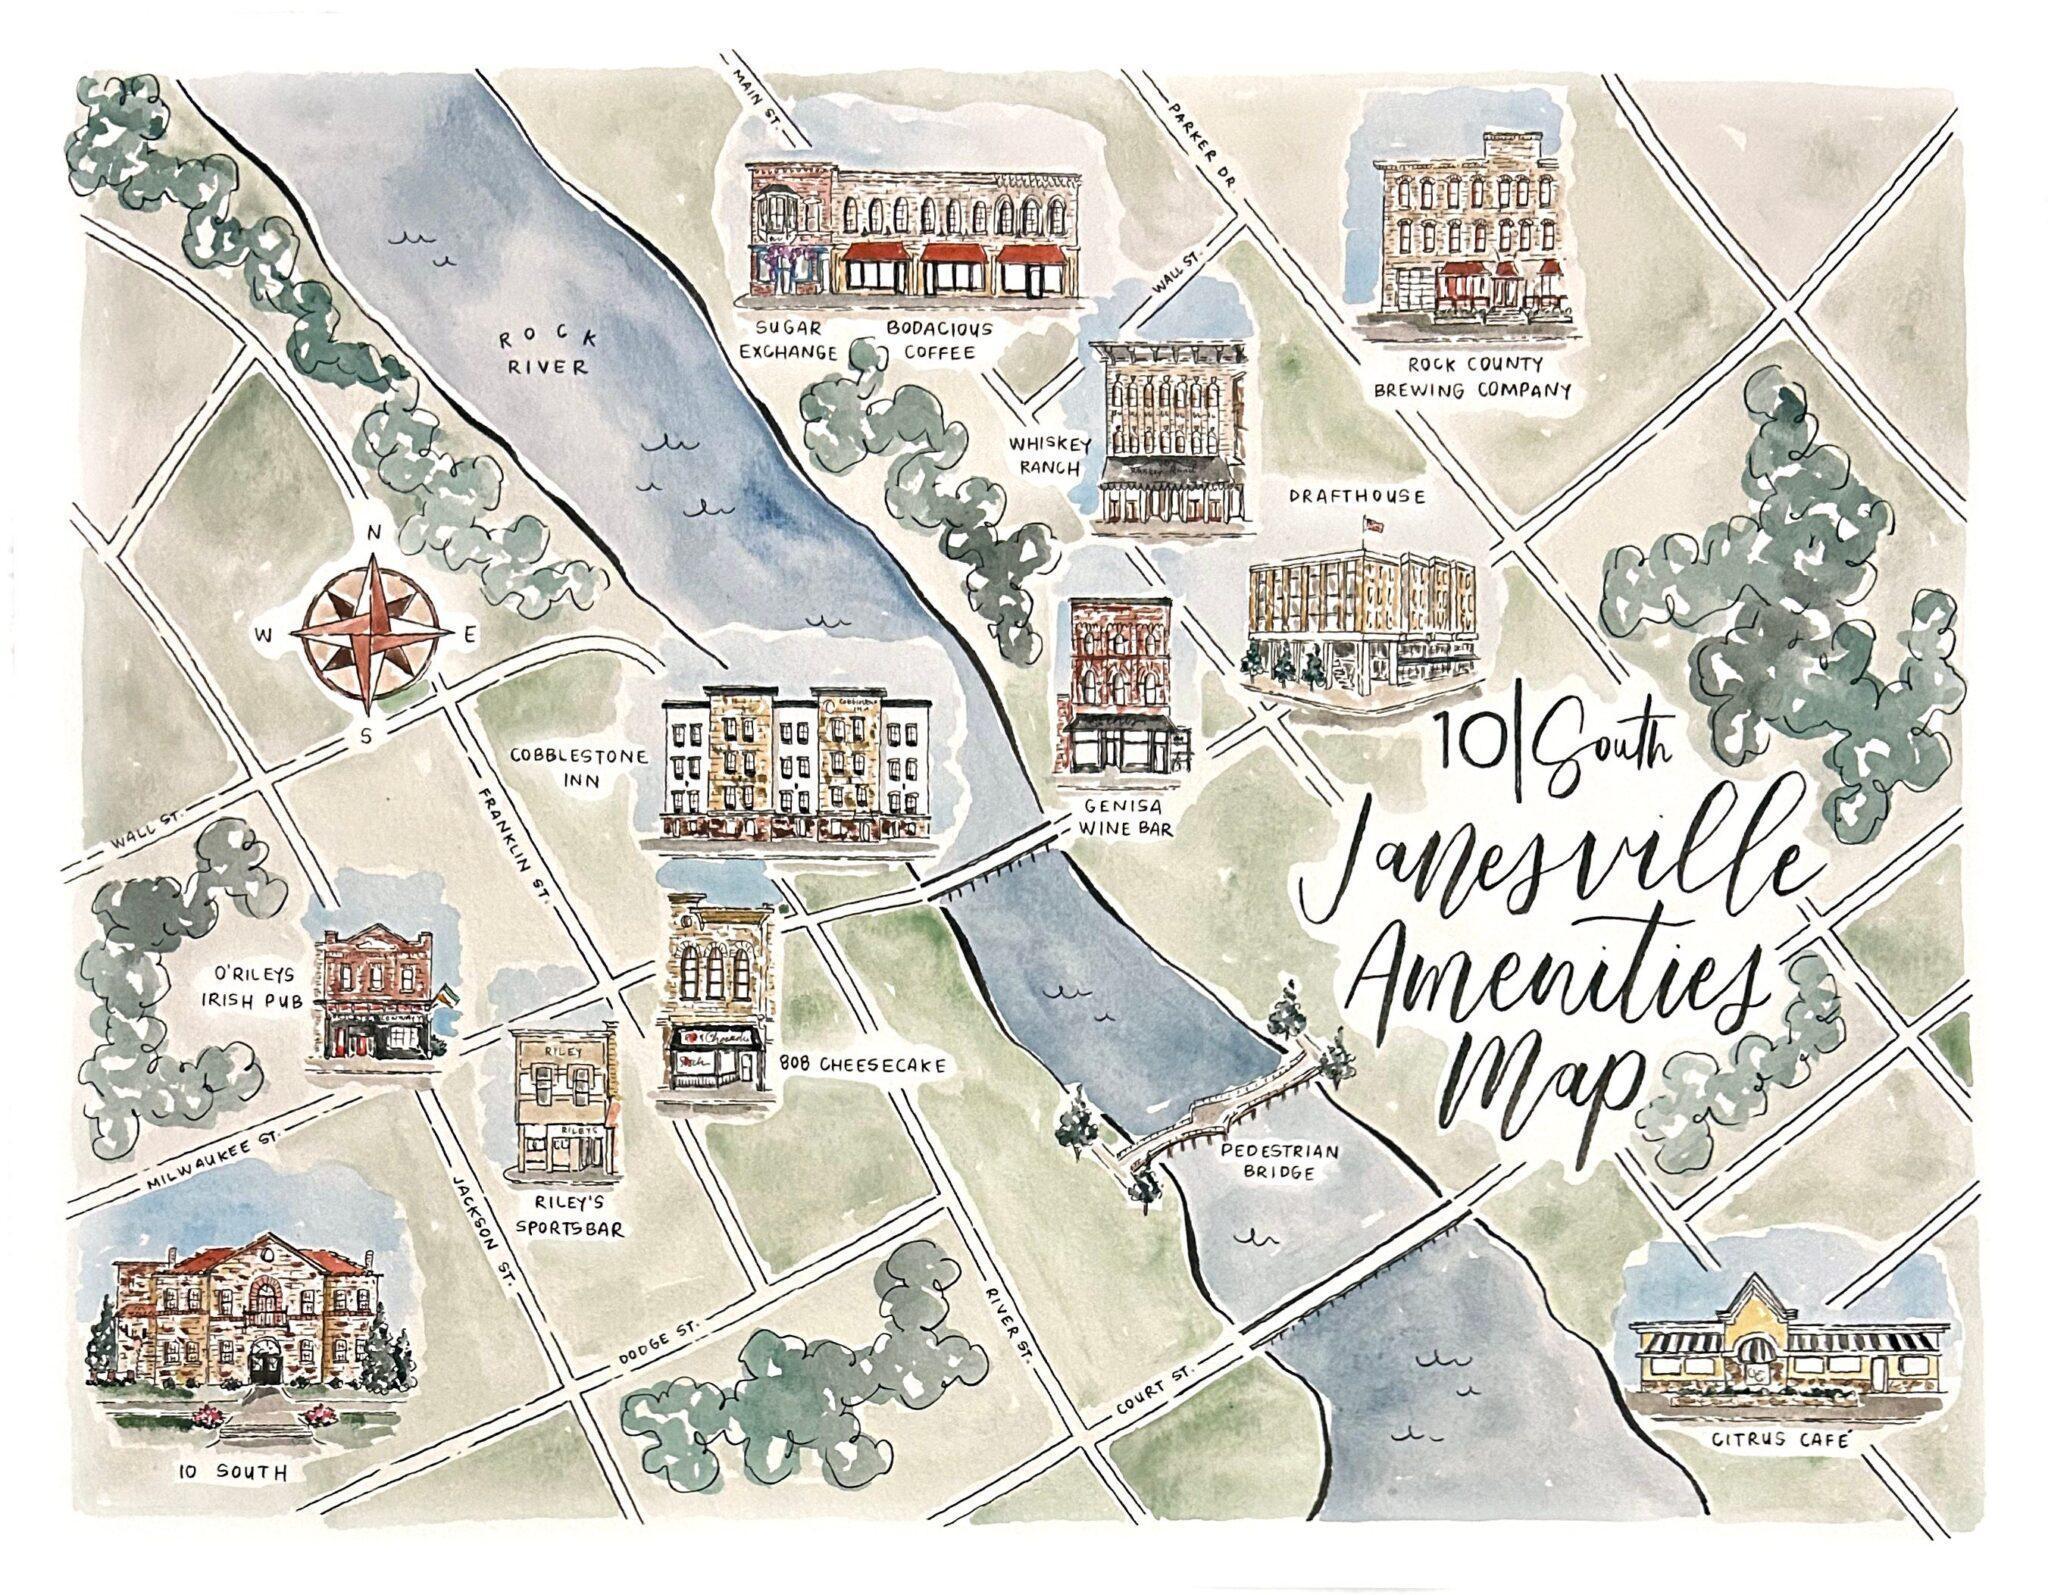 MAIN ST.
PARKER DR.
ROCK
RIVER
SUGAR
EXCHANGE
BODACIOUS
COFFEE
WALL ST.
ROCK COUNTY
BREWING COMPANY
WHISKEY
RANCH
DRAFTHOUSE
N
W
E
S
COBBLESTONE
INN
COBBLESTONE
INN
10|South
Janesville
Amenities
Map
GENISA
WINE BAR
WALL ST.
FRANKLIN ST.
O'RILEYS
IRISH PUB
RILEY
RILEYS
808 CHEESECAKE
RILEY'S
SPORTSBAR
PEDESTRIAN
BRIDGE
MILWAUKEE ST.
JACKSON ST.
DODGE ST.
RIVER ST.
COURT ST.
10 SOUTH
CITRUS CAFÉ